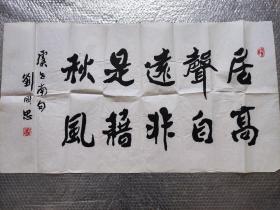 居高
聲自
遠非
是藉
秋風
虞世南句
劉